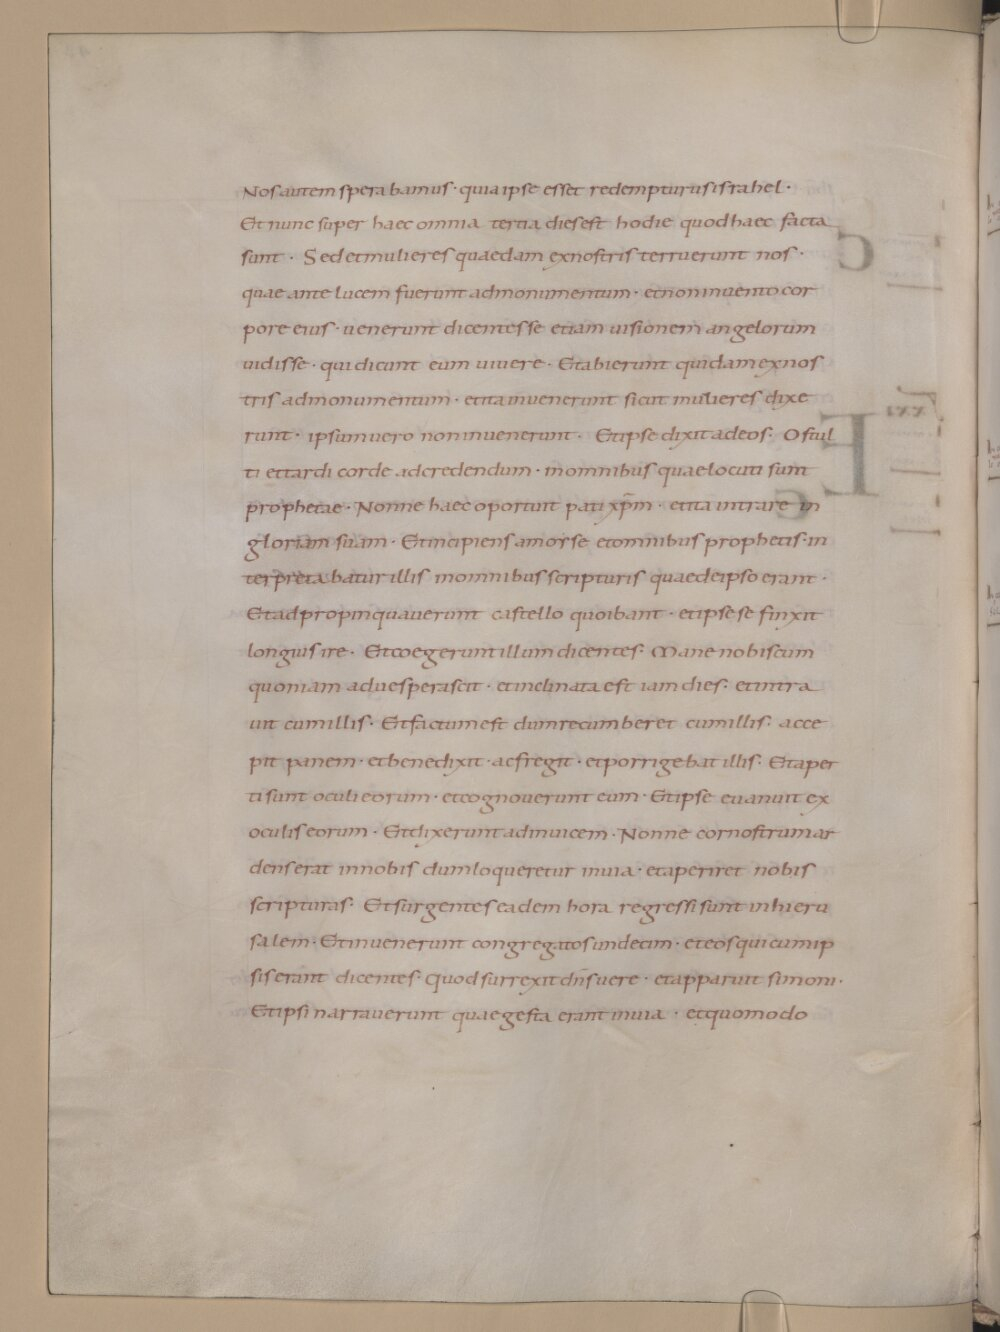 Nos autem sperabamus · quia ipse esset redempturus israhel ·
Et nunc super haec omnia tertia dies est hodie quod haec facta
sunt · Sed et mulieres quaedam ex nostris terruerunt nos ·
quae ante lucem fuerunt ad monumentum · et non inuento cor
pore eius · uenerunt dicentes se etiam uisionem angelorum
uidisse · qui dicunt eum uiuere · Et abierunt quidam ex nos
tris ad monumentum · et ita inuenerunt sicut mulieres dixe
runt · ipsum uero non inuenerunt · Et ipse dixit ad eos · O stul
ti et tardi corde ad credendum · in omnibus quae locuti sunt
prophetae · Nonne haec oportuit pati xp̄m · et ita intrare in
gloriam suam · Et incipiens a mose et omnibus prophetis · in
terpretabatur illis in omnibus scripturis quae de ipso erant ·
Et adpropinquauerunt castello quo ibant · et ipse se finxit
longius ire · Et coegerunt illum dicentes · Mane nobiscum
quoniam aduesperascit · et inclinata est iam dies · et intra
uit cum illis · Et factum est dum recumberet cum illis · acce
pit panem · et benedixit · ac fregit · et porrigebat illis · Et aper
ti sunt oculi eorum · et cognouerunt eum · Et ipse euanuit ex
oculis eorum · Et dixerunt ad inuicem · Nonne cor nostrum ar
dens erat in nobis dum loqueretur in uia · et aperiret nobis
scripturas · Et surgentes eadem hora regressi sunt in hieru
salem · Et inuenerunt congregatos undecim · et eos qui cum ip
sis erant dicentes · Quod surrexit dn̄s uere · et apparuit simoni ·
Et ipsi narrauerunt quae gesta erant in uia · et quomodo